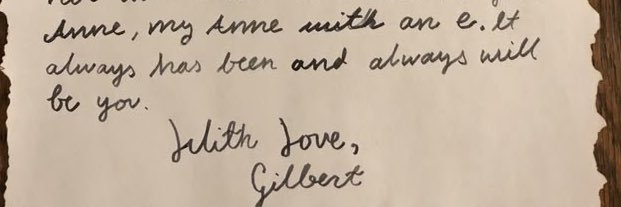 Anne, my Anne with an e. It
always has been and always will
be you.
With Love,
Gilbert